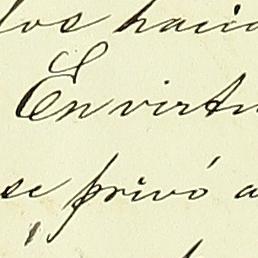 los hacia
En virtu
se privó a